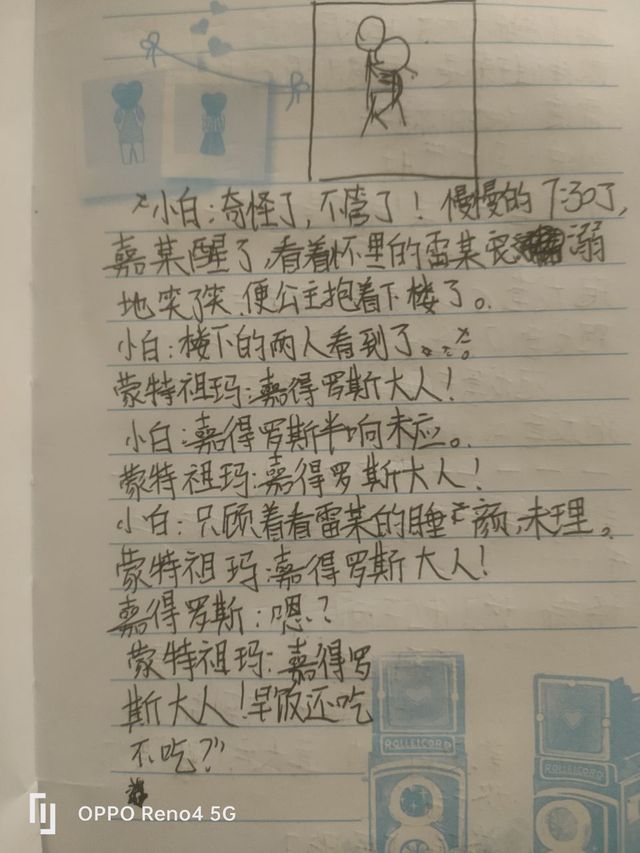 小白:奇怪了,不管了!慢慢的7:30了,
嘉某醒了,看着怀里的雷某宠溺
地笑了笑.便公主抱着下楼了。
小白:楼下的两人看到了。。。
蒙特祖玛:嘉得罗斯大人!
小白:嘉得罗斯半响未应。
蒙特祖玛:嘉得罗斯大人!
小白:只顾着看雷某的睡颜,未理。
蒙特祖玛:嘉得罗斯大人!
嘉得罗斯:嗯?
蒙特祖玛:嘉得罗
斯大人!早饭还吃
不吃?"
ROLLEICORD
ROLLEICORD
OPPO Reno4 5G